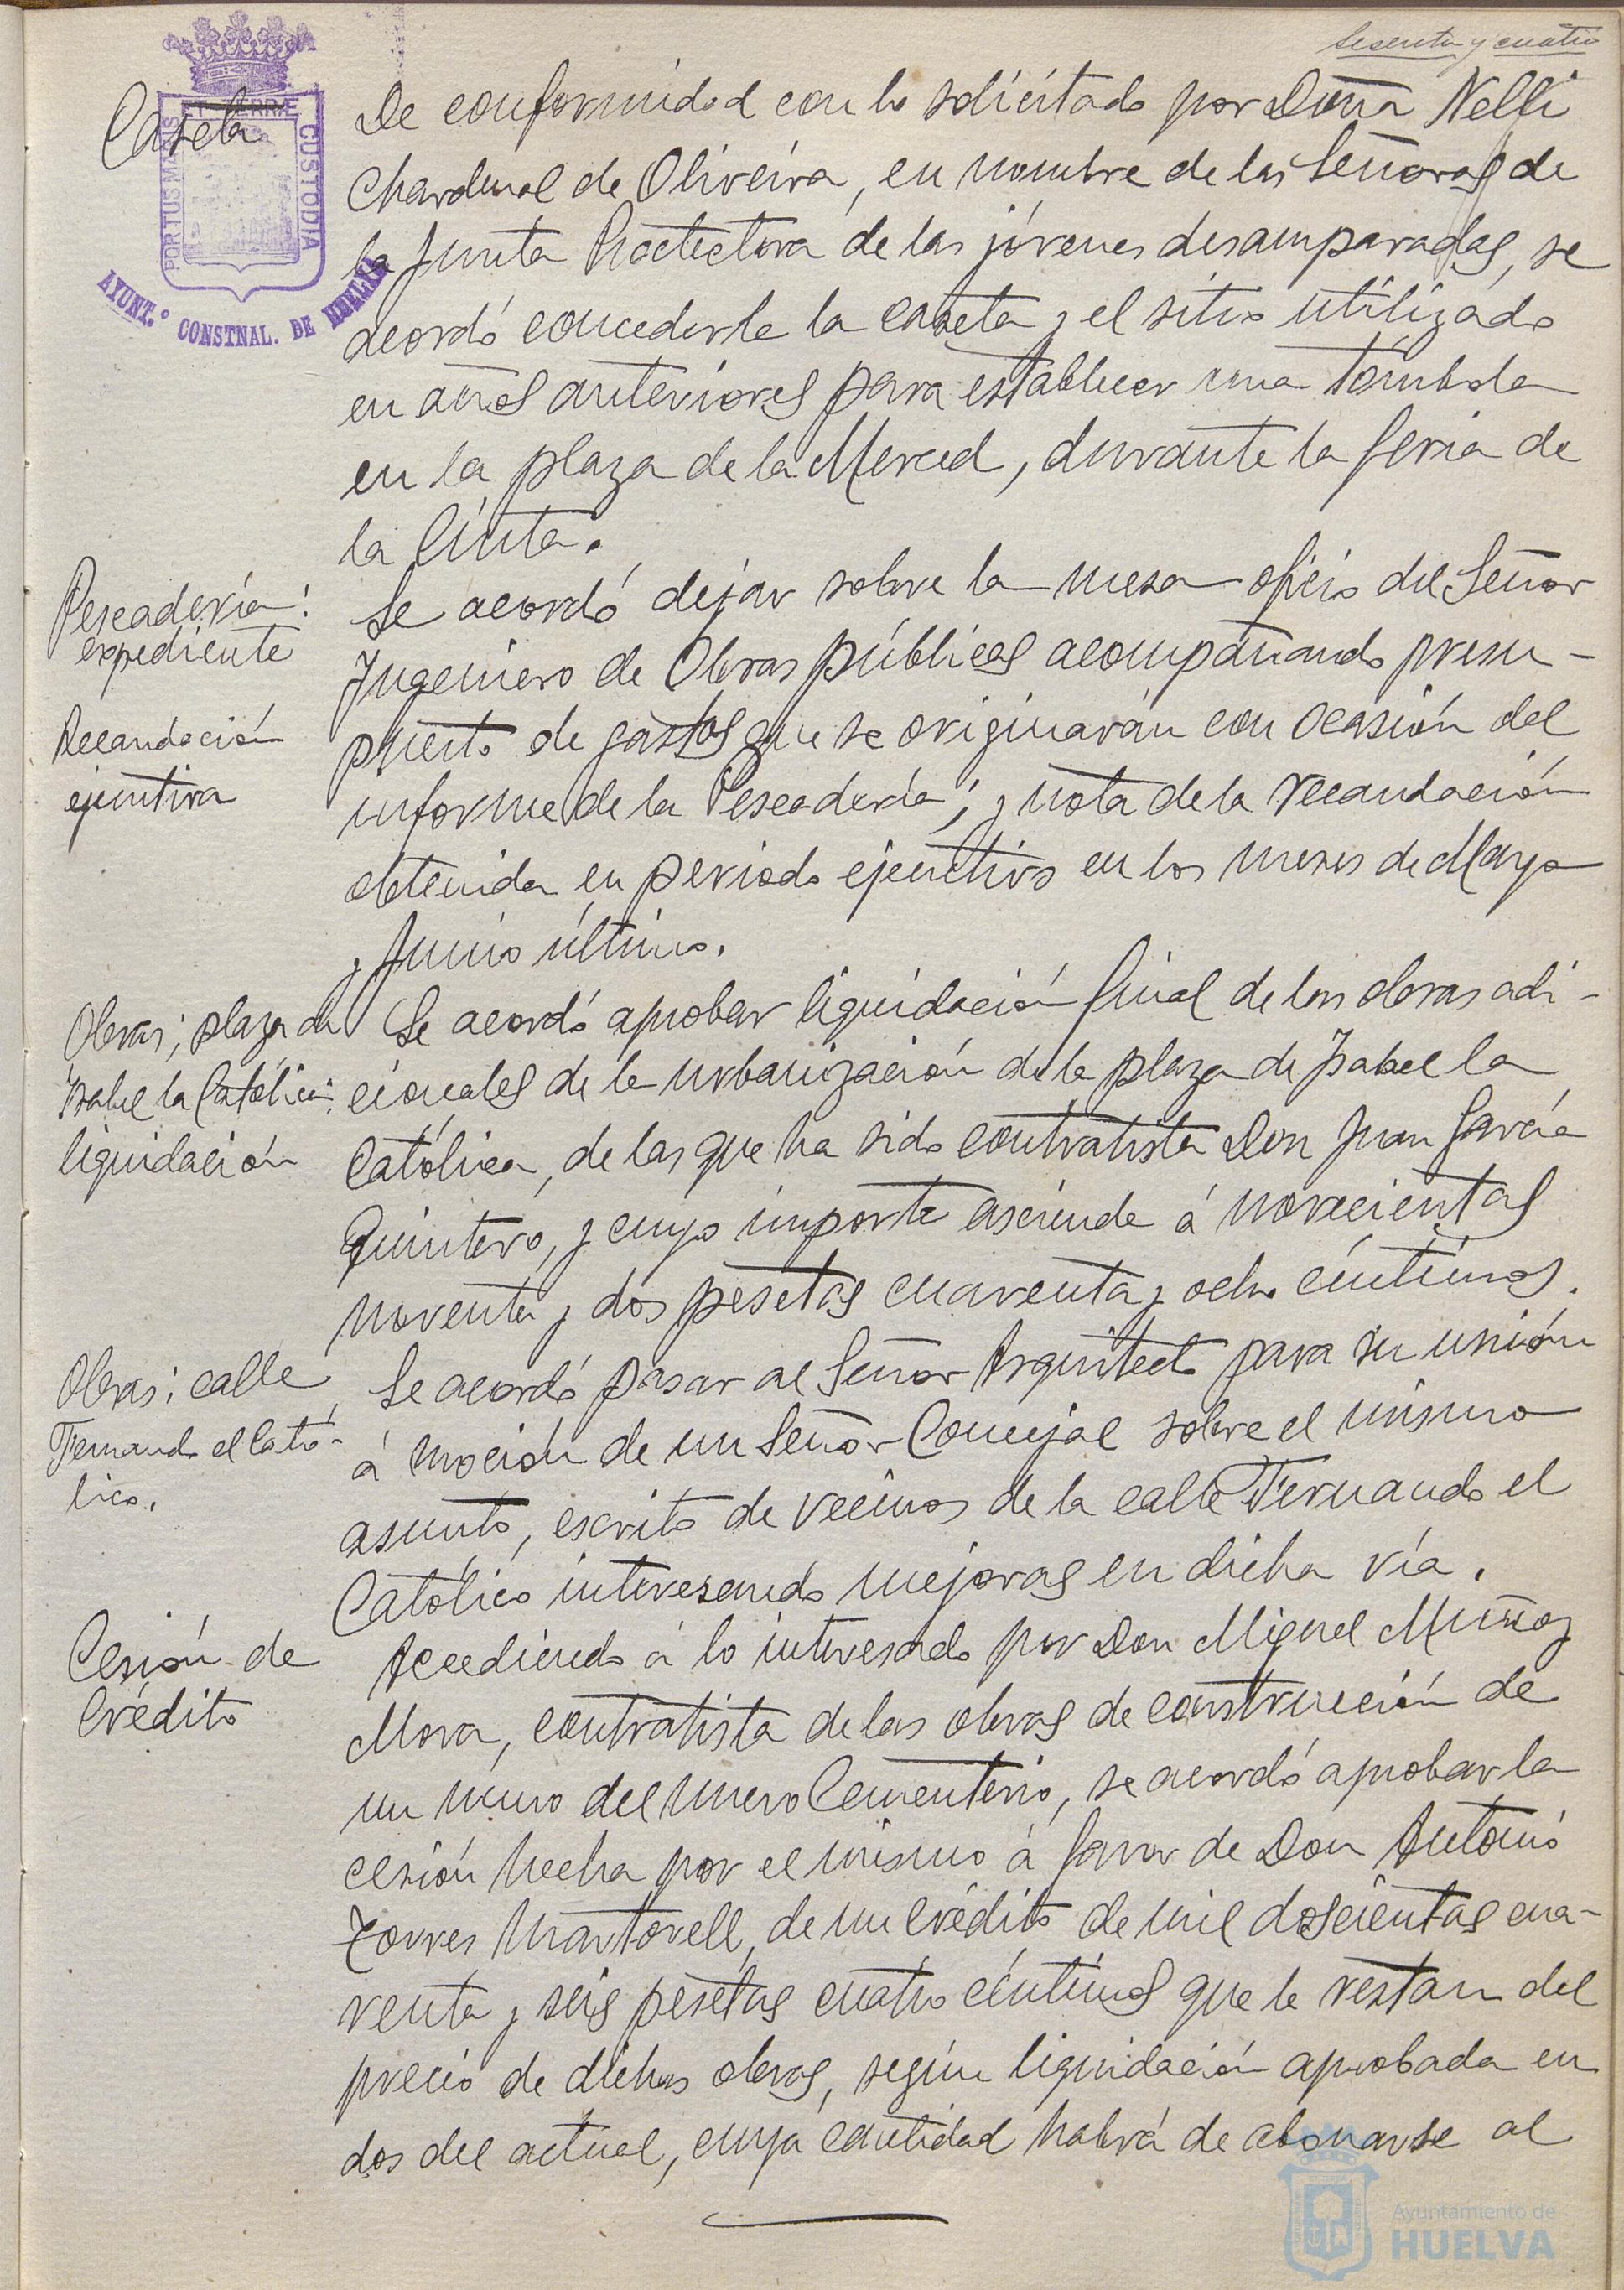 sesenta y cuatro
Caseta
PORTUS MARIS ET TERRÆ CUSTODIA
AYUNT.º CONSTNAL. DE HUELVA
De conformidad con lo solicitado por Doña Nelli
Chardenal de Oliveira, en nombre de las Señoras de
la Junta Protectora de las jóvenes desamparadas, se
acordó concederle la caseta y el sitio utilizado
en años anteriores para establecer una tómbola
en la plaza de la Merced, durante la feria de
la Cinta.
Pescadería:
expediente
Recaudación
ejecutiva
Se acordó dejar sobre la mesa oficio del Señor
Ingeniero de Obras públicas acompañando presu-
puesto de gastos que se originarán con ocasión del
informe de la Pescadería; y nota de la recaudación
obtenida en periodo ejecutivo en los meses de Mayo
y Junio último.
Obras; plaza de
Isabel la Católica:
liquidación
Se acordó aprobar liquidación final de las obras adi-
cionales de la urbanización de la plaza de Isabel la
Católica, de las que ha sido contratista Don Juan García
Quintero, y cuyo importe asciende á novecientas
noventa y dos pesetas cuarenta y ocho céntimos.
Obras: calle
Fernando el Cató-
lico.
Se acordó pasar al Señor Arquitecto para su unión
á moción de un Señor Concejal sobre el mismo
asunto, escrito de vecinos de la calle Fernando el
Católico interesando mejoras en dicha vía.
Cesión de
Crédito
Accediendo á lo interesado por Don Miguel Muñoz
Mora, contratista de las obras de construcción de
un muro del nuevo Cementerio, se acordó aprobar la
cesión hecha por el mismo á favor de Don Antonio
Torres Martorell, de un crédito de mil doscientas cua-
renta y seis pesetas cuatro céntimos que le restan del
precio de dichas obras, según liquidación aprobada en
dos del actual, cuya cantidad habrá de abonarse al
Ayuntamiento de
HUELVA